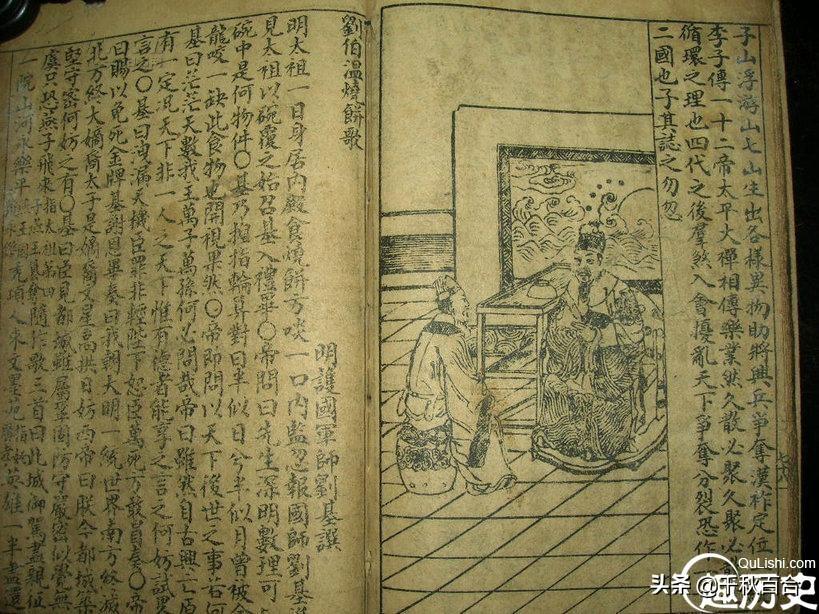 子山浮游山七山生出各樣異物助將興兵爭奪漢祚定位
李子傳一十二帝太平大禪相傳樂業然久散必聚久聚必
循環之理也四代之後羣煞入會擾亂天下爭奪分裂恐作
二國也子其誌之勿忽
劉伯溫燒餅歌
明護國軍師劉基撰
明太祖一日身居內殿食燒餅方啖一口內監忽報國師劉基
見太祖以碗覆之始召基入禮畢〇帝問曰先生深明數理可
碗中是何物件〇基乃掐指輪算對曰半似日兮半似月曾被金
龍咬一缺此食物也開視果然〇帝即問以天下後世之事若何
基曰茫茫天數我主萬子萬孫何必問哉帝曰雖然自古興亡原
有一定況天下非一人之天下惟有德者能享之言之何妨試畧
言之〇基曰洩漏天機臣罪非輕陛下恕臣萬死方敢冒奏〇帝
曰賜以免死金牌基謝恩畢奏曰我朝大明一統世界南方終滅
北方終太嫡裔太子是嫡裔文星高拱日妨西帝曰朕今都城築
堅守密何妨之有〇基曰臣見都城雖屬鞏固防守嚴密似覺無
虞只恐燕子飛來隨作歌三首曰此城御駕盡親征
一院山河永樂平禿頂人來文墨苑英雄一半盡還
QuLishi.com
趣历史
头条 @千秋百合